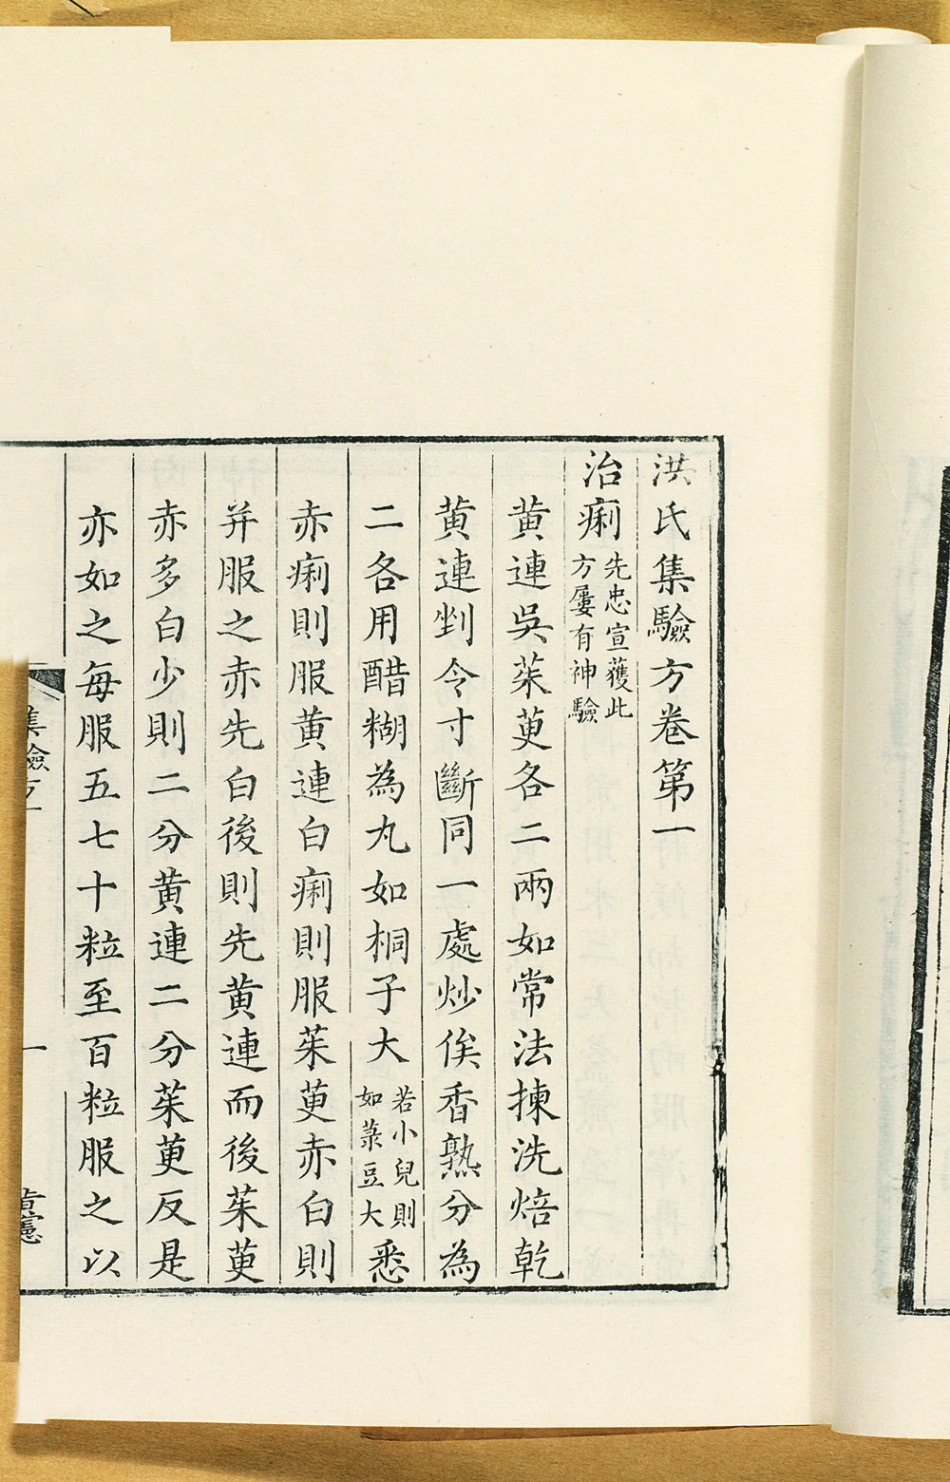 洪氏集驗方卷第一
治痢先忠宣獲此
方屢有神驗
黄連吳茱萸各二兩如常法揀洗焙乾
黄連剉令寸斷同一處炒俟香熟分為
二各用醋糊為丸如桐子大若小兒則
如菉豆大悉
赤痢則服黄連白痢則服茱萸赤白則
并服之赤先白後則先黄連而後茱萸
赤多白少則二分黄連二分茱萸反是
亦如之每服五七十粒至百粒服之以
集驗方一
一
黄憲